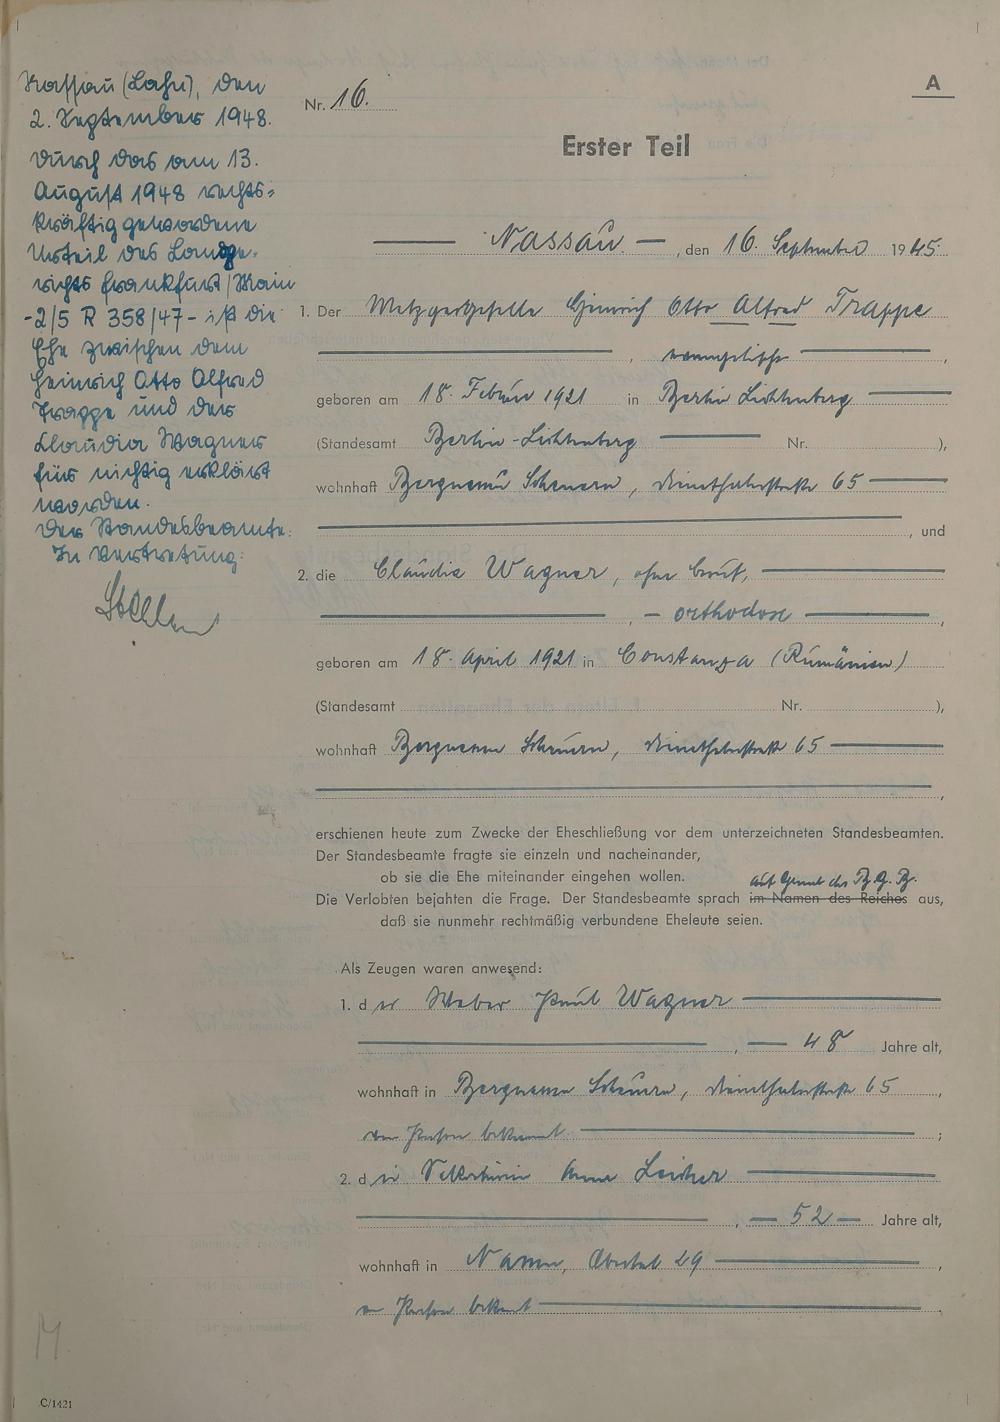 Nassau (Lahn), den
2. September 1948.
Durch das am 13.
August 1948 rechts=
kräftig gewordene
Urteil des Landge-
richts Frankfurt/Main
-2/5 R 358/47- ist die
Ehe zwischen dem
Heinrich Otto Alfred
Trappe und der
Claudia Wagner
für nichtig erklärt
worden.
Der Standesbeamte:
In Vertretung:
A
Nr. 16.
Erster Teil
Nassau, den 16. September 1945
1. Der Metzgergeselle Heinrich Otto Alfred Trappe
, evangelisch,
geboren am 18. Februar 1921 in Berlin Lichtenberg
(Standesamt Berlin-Lichtenberg Nr. ),
wohnhaft Bergnassau Scheuern, 65
, und
2. die Claudia Wagner, ohne Beruf,
, - orthodox ,
geboren am 18. April 1921 in Constanza (Rumänien)
(Standesamt Nr. ),
wohnhaft Bergnassau Scheuern, 65
,
erschienen heute zum Zwecke der Eheschließung vor dem unterzeichneten Standesbeamten.
Der Standesbeamte fragte sie einzeln und nacheinander,
ob sie die Ehe miteinander eingehen wollen.
auf Grund des B.G.B.
Die Verlobten bejahten die Frage. Der Standesbeamte sprach im Namen des Reiches aus,
daß sie nunmehr rechtmäßig verbundene Eheleute seien.
Als Zeugen waren anwesend:
1. der Weber Paul Wagner
, 48 Jahre alt,
wohnhaft in Bergnassau Scheuern, 65,
von Person bekannt ;
2. die Anna
, 52 Jahre alt,
wohnhaft in Nassau, Obertal 29,
von Person bekannt ,
C/1421